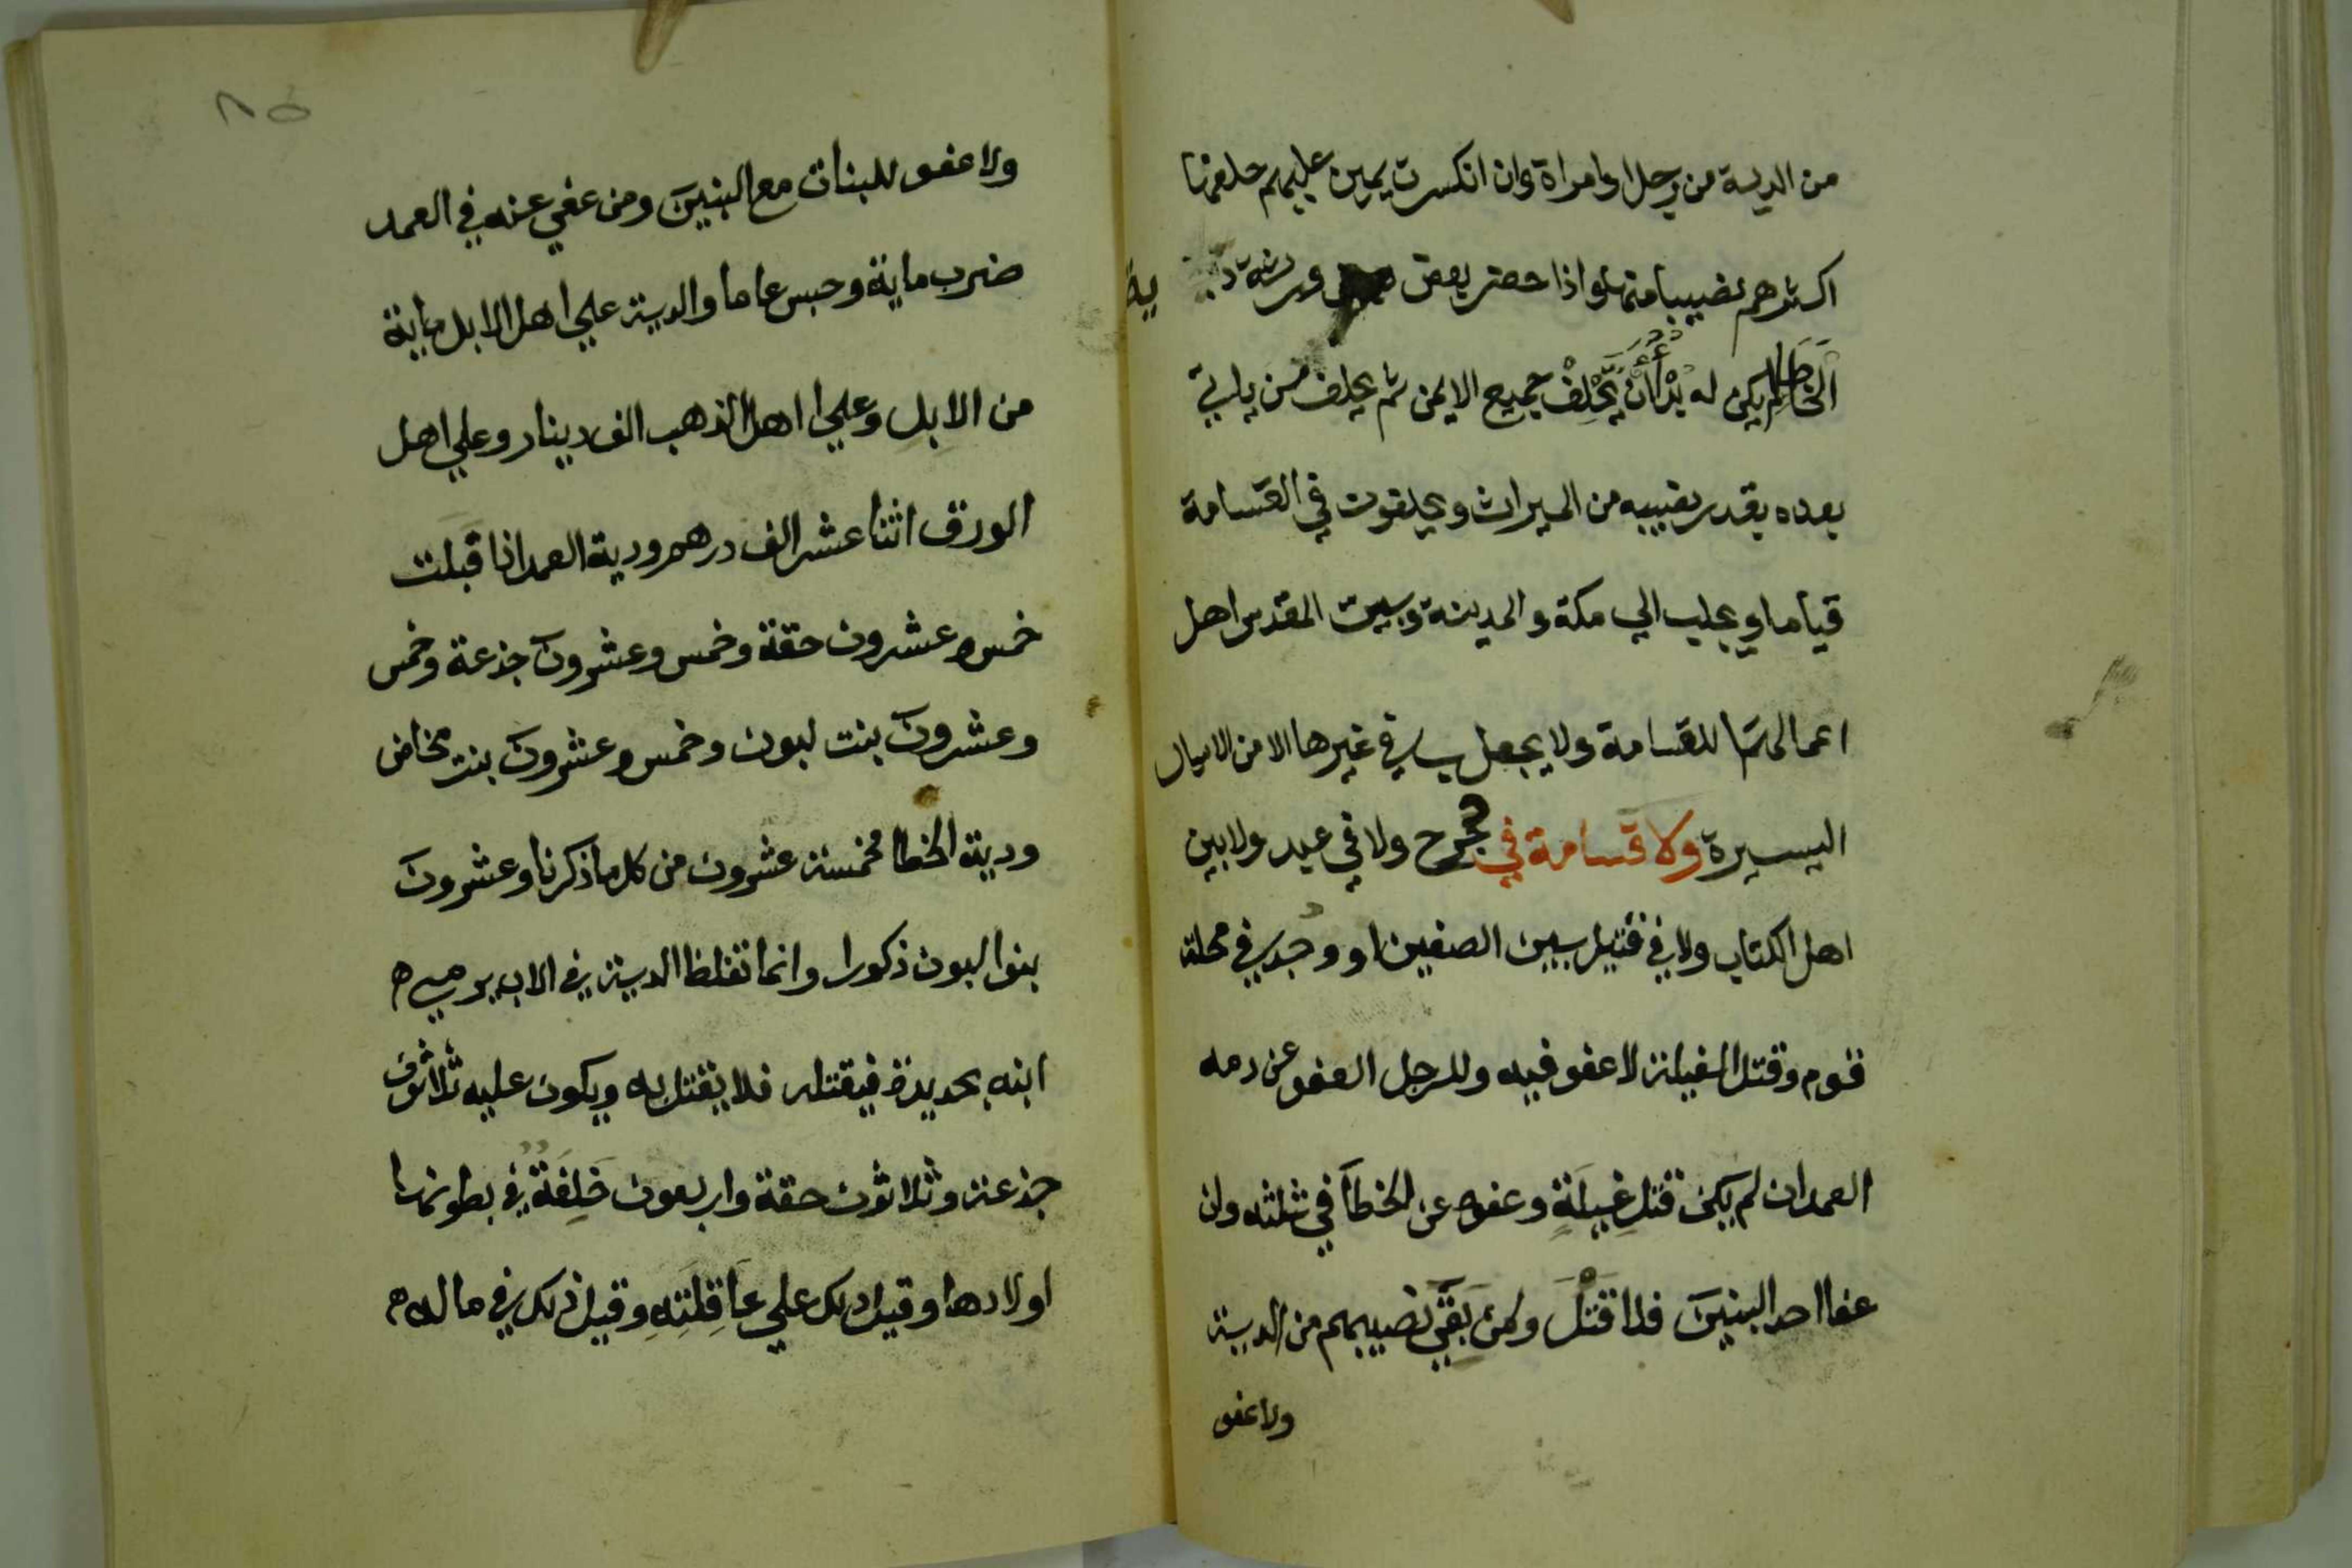 من الدية من رجل او امراة وان انكسرت يمين عليهم حلفها
اكثرهم نصيبا منها واذا حضر بعض ورثة دية
الخطا لم يكن له بد أن يحلف جميع الايمن ثم يحلف من ياتي
بعده بقدر نصيبه من الميراث ويحلفون في القسامة
قياما ويجلب الي مكة والمدينة وبيت المقدس اهل
اعمالها للقسامة ولا يجعل في غيرها الا من الاميال
اليسيرة ولا قسامة في جرح ولا في عبد ولا بين
اهل الكتاب ولا في قتيل بين الصفين او وجد في محلة
قوم وقتل الغيلة لا عفو فيه وللرجل العفو عن دمه
العمد ان لم يكن قتل غيلة وعفوه عن الخطأ في ثلثه وان
عفا احد البنين فلا قتل ولمن بقي نصيبهم من الدية
ولا عفو
٨٥
ولا عفو للبنات مع البنين ومن عفي عنه في العمد
ضرب ماية وحبس عاما والدية علي اهل الابل ماية
من الابل وعلي اهل الذهب الف دينار وعلي اهل
الورق اثنا عشر الف درهم ودية العمد اذا قبلت
خمس وعشرون حقة وخمس وعشرون جذعة وخمس
وعشرون بنت لبون وخمس وعشرون بنت مخاض
ودية الخطا مخمسة عشرون من كل ما ذكرنا وعشرون
بنوا لبون ذكورا وانما تغلظ الدية في الاب يرمي
ابنه بحديدة فيقتله فلا يقتل به ويكون عليه ثلاثون
جذعة وثلاثون حقة واربعون خلفة في بطونها
اولادها وقيل ذلك علي عاقلته وقيل ذلك في ماله